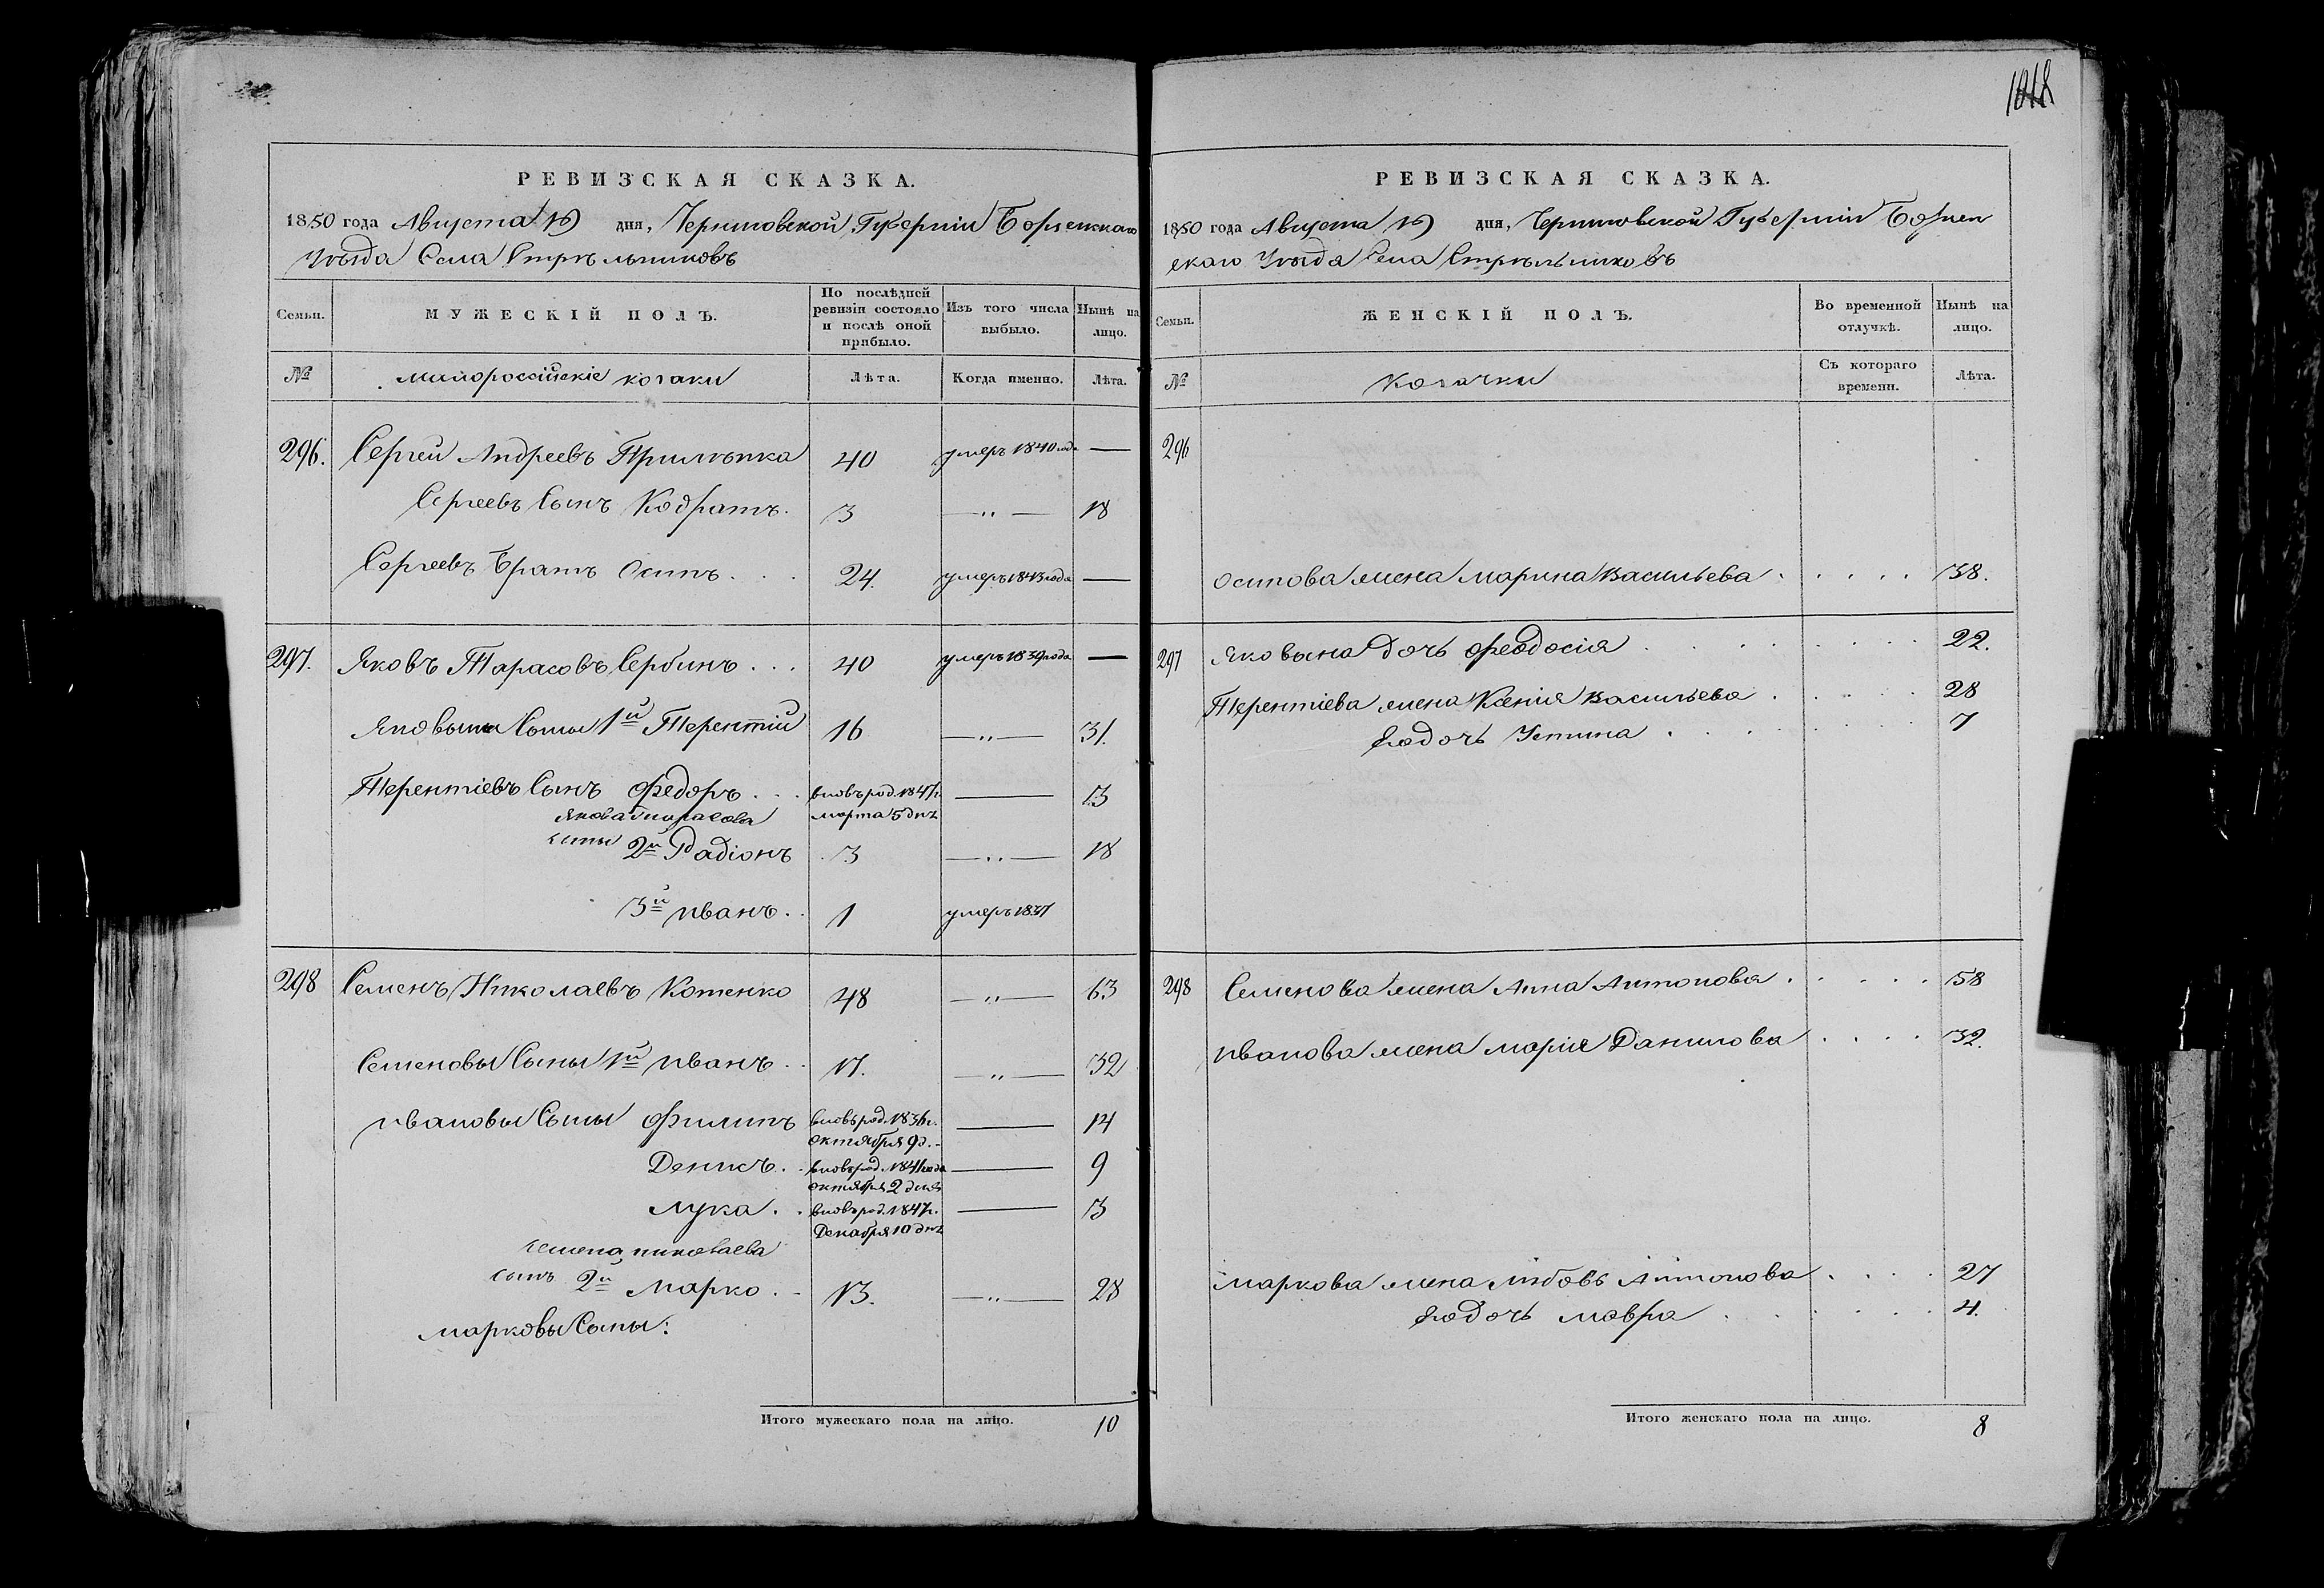 РЕВИЗСКАЯ СКАЗКА.
1850 года Августа 16 дня, Черниговской Губерніи Борзенскаго
уѣзда Села Стрѣльниковъ
Семьи.
МУЖЕСКІЙ ПОЛЪ.
По послѣдней ревизіи состояло и послѣ оной прибыло.
Изъ того числа выбыло.
Нынѣ на лицо.
№
малороссійскіе козаки
Лѣта.
Когда именно.
Лѣта.
296. Сергей Андреевъ 40 умеръ 1840 года —
Сергеевъ Сынъ Кодратъ. 3 —"— 18
Сергеевъ Братъ Осипъ . . . 24. умеръ 1843 года —
297. Яковъ Тарасовъ Сербинъ . . . 40 умеръ 1839 года —
Яковы Сыны 1й Терентій 16 —"— 31.
Терентіевъ Сынъ Федоръ . . . вновь род. 1847 г. — 3
Якова Тарасова марта 5 дня
сыны 2й Радіонъ 3 —"— 18
3й иванъ . . 1 умеръ 1837
298 Семенъ Николаевъ Котенко 48 —"— 63
Семеновы Сыны 1й иванъ . . 17. —"— 32
ивановы Сыны Филипъ вновь род. 1836 г. — 14
октября 9 д.
Денисъ . . вновь род. 1841 года — 9
октября 2 дня
Лука . . вновь род. 1847 г. — 3
Декабря 10 дня
семена николаева
сынъ 2й Марко . . 13. —"— 28
марковы Сыны:
Итого мужескаго пола на лицо. 10
РЕВИЗСКАЯ СКАЗКА.
1850 года Августа 16 дня, Черниговской Губерніи Борзен
скаго Уѣзда Села Стрѣльниковъ
Семьи.
ЖЕНСКІЙ ПОЛЪ.
Во временной отлучкѣ.
Нынѣ на лицо.
№
Козачки
Съ котораго времени.
Лѣта.
296
Осипова жена Марина Васильева . . . . . 38.
297 Яковына дочь Феодосія . . . . . . 22.
Терентіева жена Ксенія Васильева . . . . 28
Ея дочь Устина . . . . . 7
298 Семенова жена Анна Антонова . . . . . 58
иванова жена Марія Данилова . . . . 32.
Маркова жена Любовь Антонова . . . . 27
Ея дочь Мавра . . . . . . 4.
Итого женскаго пола на лицо. 8